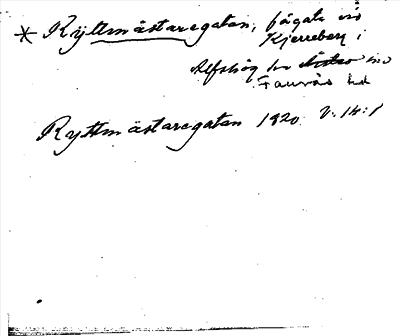 * Ryttmästaregatan, fägata vid
Kjerreberg i
Alfshög sn Årstad
Faurås hd
Ryttmästaregatan 1820 V:14:1